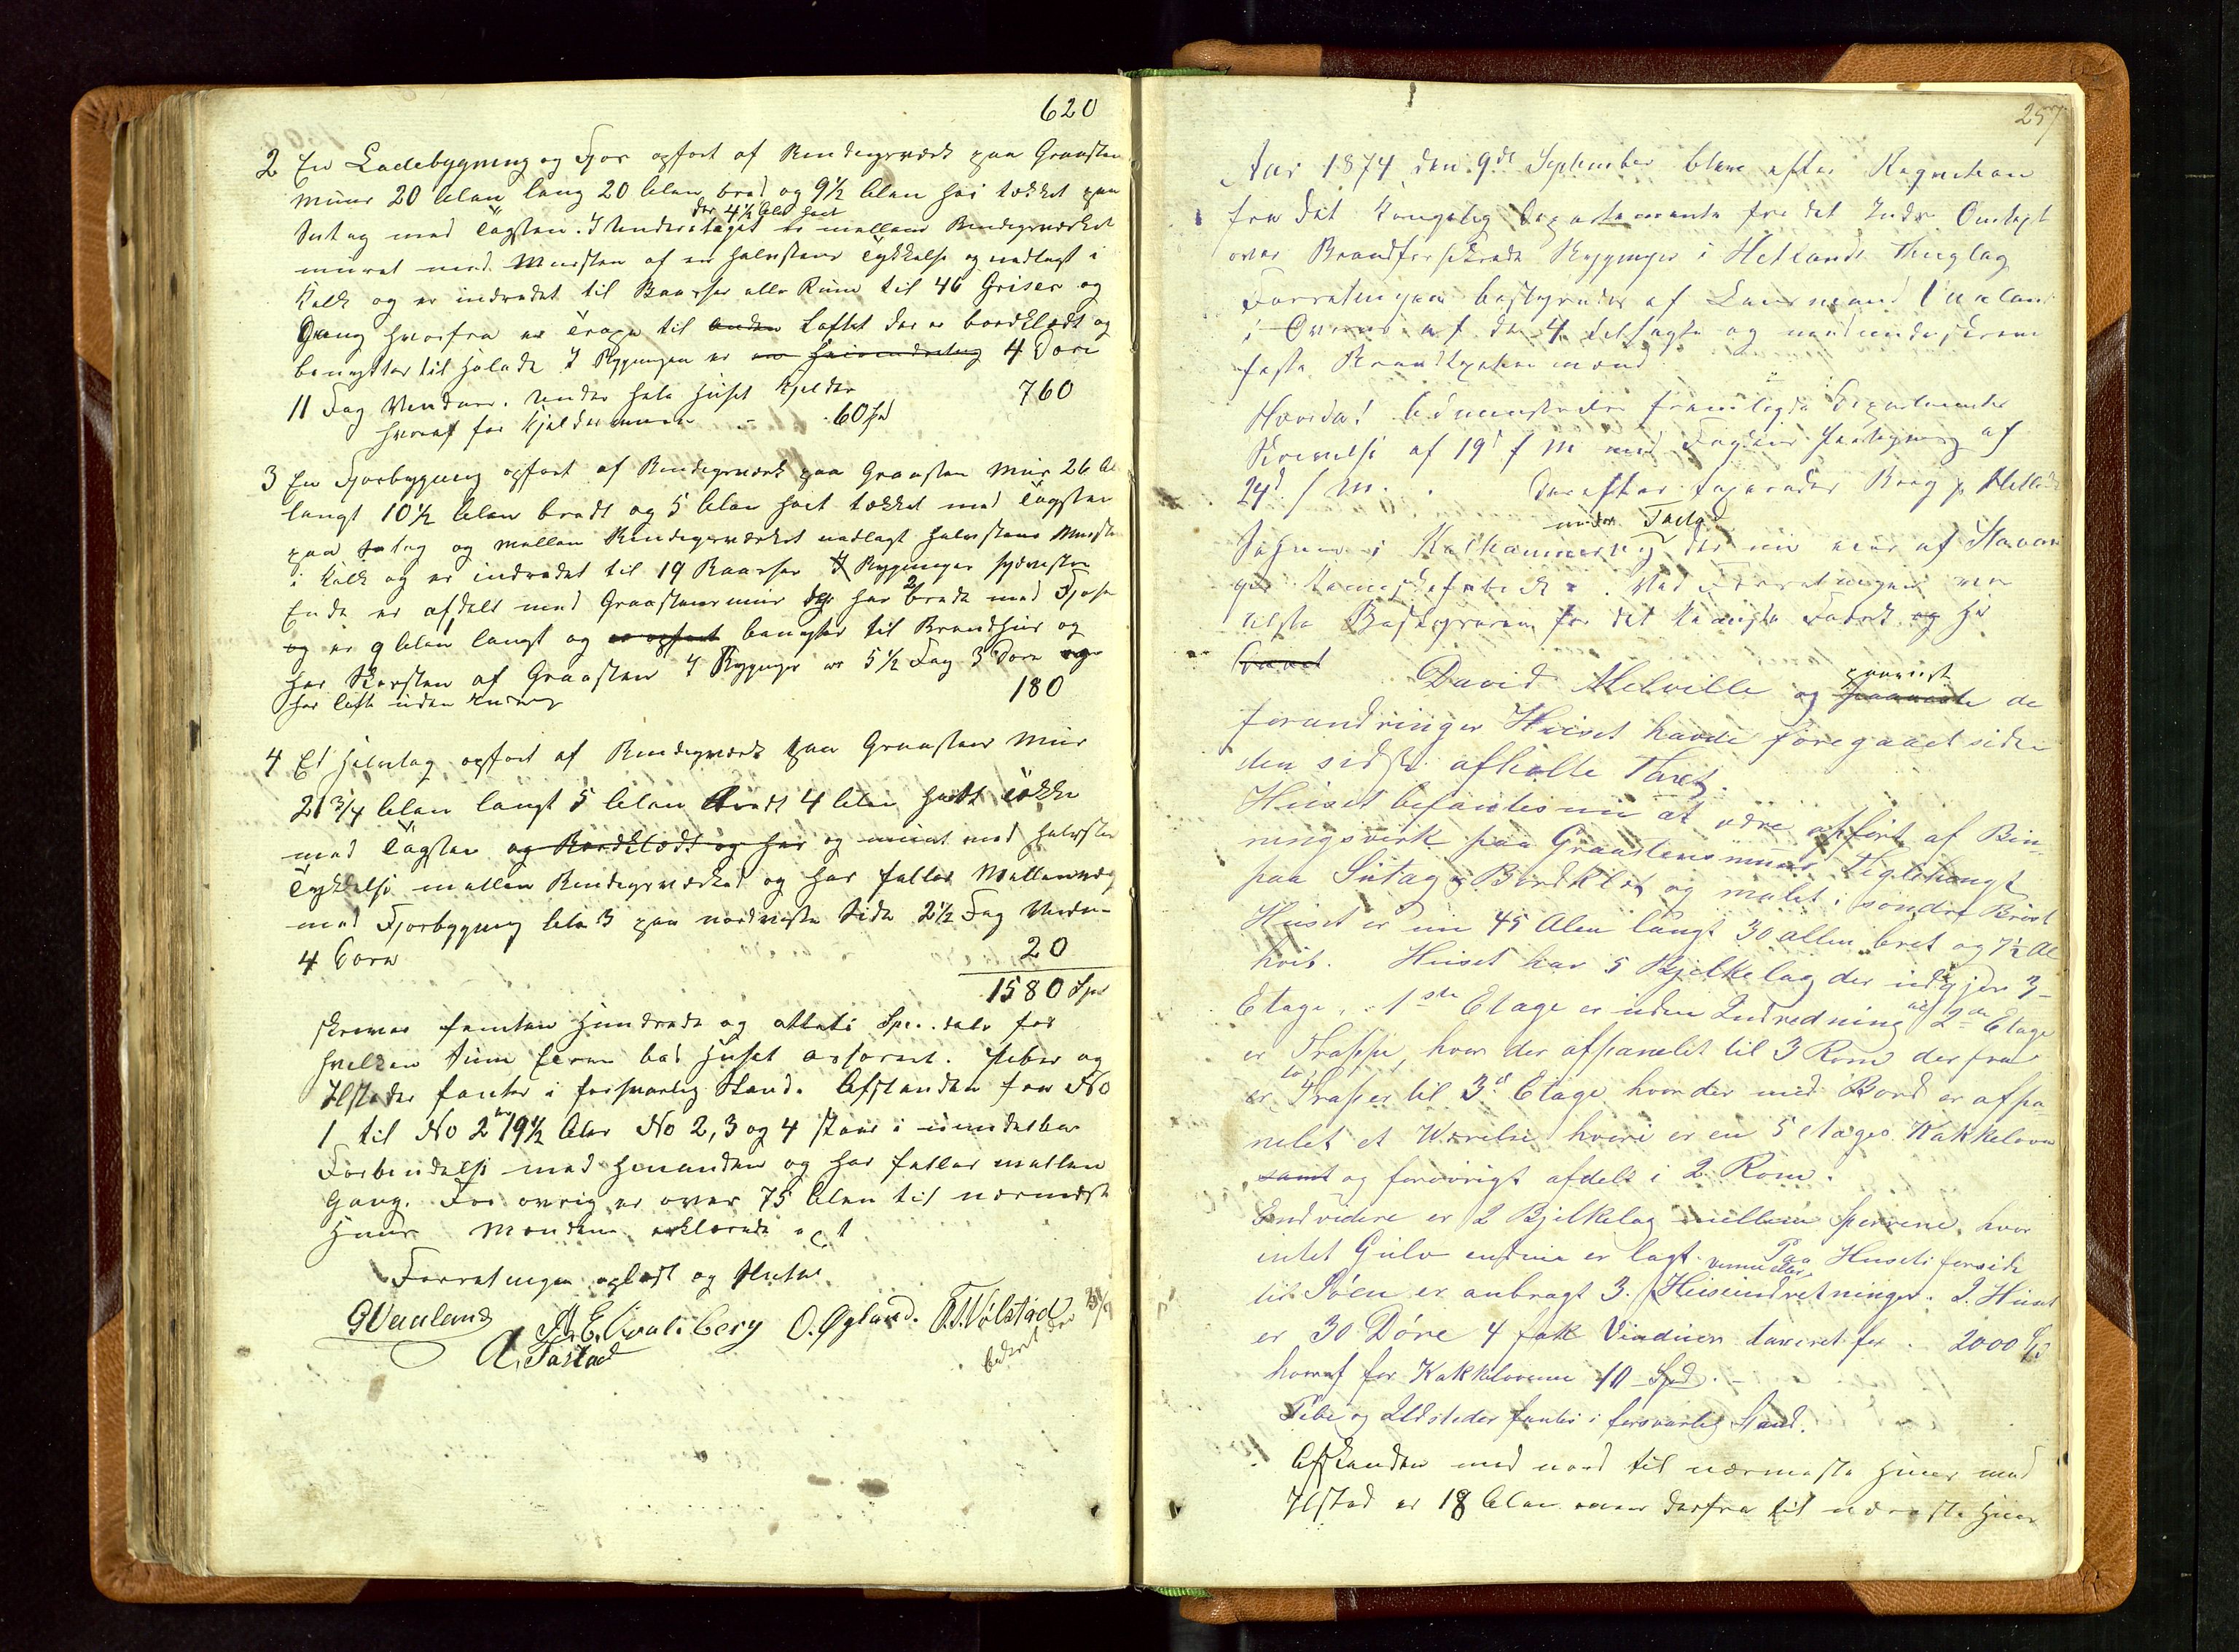 620
2 En Ladebygning og Fjos opført af Bindingsværk paa Graasten
muur 20 Alen lang 20 Alen bred og 9½ Alen høi tækket paa
Sutag med Tagsten. I Underetaget
der 4½ Alen høit
er mellem Bindingsværket
muret med Mursten af en halvstens Tykkelse og nedlagt i
Kalk og er indredet til Baasse eller Rum til 46 Griser og
Gang hvorfra er Trappe til Anden Loftet der er bordklædt og
benyttes til Hølade I Bygningen er en Heiseindretning 4 Døre
11 Fag Vinduer. Under hele Huset Kjelder 760
hvoraf for Kjeldermuren - 60 Spd
3 En Fjosbygning opført af Bindingsværk paa Graasten Mur 26 Al
langt 10½ Alen bredt og 5 Alen høit tækket med Tagsten
paa Sutag og mellem Bindingsværket nedlagt halvstens Mursten
i Kalk og er indredet til 19 Baasser I Bygningen sydvestre
Ende er afdelt med Graastensmur der har 2 bredde med Fjøse
og er 9 Alen langt og er opført benyttes til Brændhus og
har Skorsten af Graasten I Bygningen er 5½ Fag 3 Døre og
har Loft uden 180
4 Et Halvtag opført af Bindingsværk paa Graastens Mur
21¾ Alen langt 5 Alen bredt 4 Alen høit tække
med Tagsten og Bordklædt og har og muret med halvsten
Tykkelse mellem Bindingsværket og har fælles Mellemvæg
med Fjosbygning Litr 3 paa nordvestre Side 2½ Fag Vindu-
4 Døre 20
1580 Spd
skriver femten Hundrede og otteti Spe. daler for
hvilken Sum Eieren bad Huset assureret. Piber og
Ilsteder fantes i forsvarlig Stand. Afstanden fra No
1 til No 2 er 19½ Alen No 2, 3 og 4 staar i umiddelbar
Forbindelse med hinanden og har fælles mellem
Gang. For øvrig er over 75 Alen til nærmeste
Huus Mændene erklærede at
Forretningen oplæst og sluttet.
G Vauland A. E. Svaleberg O. Øglænd. T. T. Vølstad
A. Tastad
257
Aar 1874 den 9de September blev efter Requisition
fra det Kongelig Departementa for det Indre Omtaxt
over Brandforsikrede Bygninger i Hetlands Thinglag
Forretningen bestyredes af Lensmand Vauland
i Overvær af de 4 tilsagte og medunderskrevne
faste Brandtaxationsmænd
Hvorda! Administrator fremlagde Departementets
Skrivelse af 19d f M med Fogdens Paategning af
24d f M. . Derefter foretoges Brug p Melbu
under Tastad
Søhuus i Kalhammervig der nu eies af Stavan
ger . Ved Forretningen var
tilstede Bestyreren for det Kemiske Fabrik og Hr
David Melville og
paaviste
de
forandringer Huset havde foregaaet siden
den sidste afholte Taxt.
Huset befantes nu at være opført af Bin-
ningsverk paa Graastensmuur Teglehengt
paa Sutag Bordklet og malet i søndre Brøst
Huset er nu 45 Alen langt 30 allen bret og 7½ Al
høit. Huset har 5 Bjelkelag der udgjør 3-
Etage, 1ste Etage er uden Indredning til 2den Etage
er Trappe, hvor der afpanelet til 3 Rom derfra
er to Trapper til 3d Etage hvor der med Bord er afpa-
nelet et Værelse hvori er en 5 etages Kakkelovn
samt og forøvrigt afdelt i 2 Rom.
Endvidere er 2 Bjelkelag mellem Sperrene, hvor
intet Gulv endnu er lagt. Paa Husets forside
til Søen er anbragt 3. Heiseindretninger. I Huset
er 30 Døre 4 fak Vinduer taxeret for . 2000 Sp
hvoraf for Kakkelovnene 10 Spd. -
Pibe og Ildsteder fantes i forsvarlig Stand.
Afstanden mod nord til nærmeste Huus med
Ilsted er 18 Alen samt derfra til næreste Huus